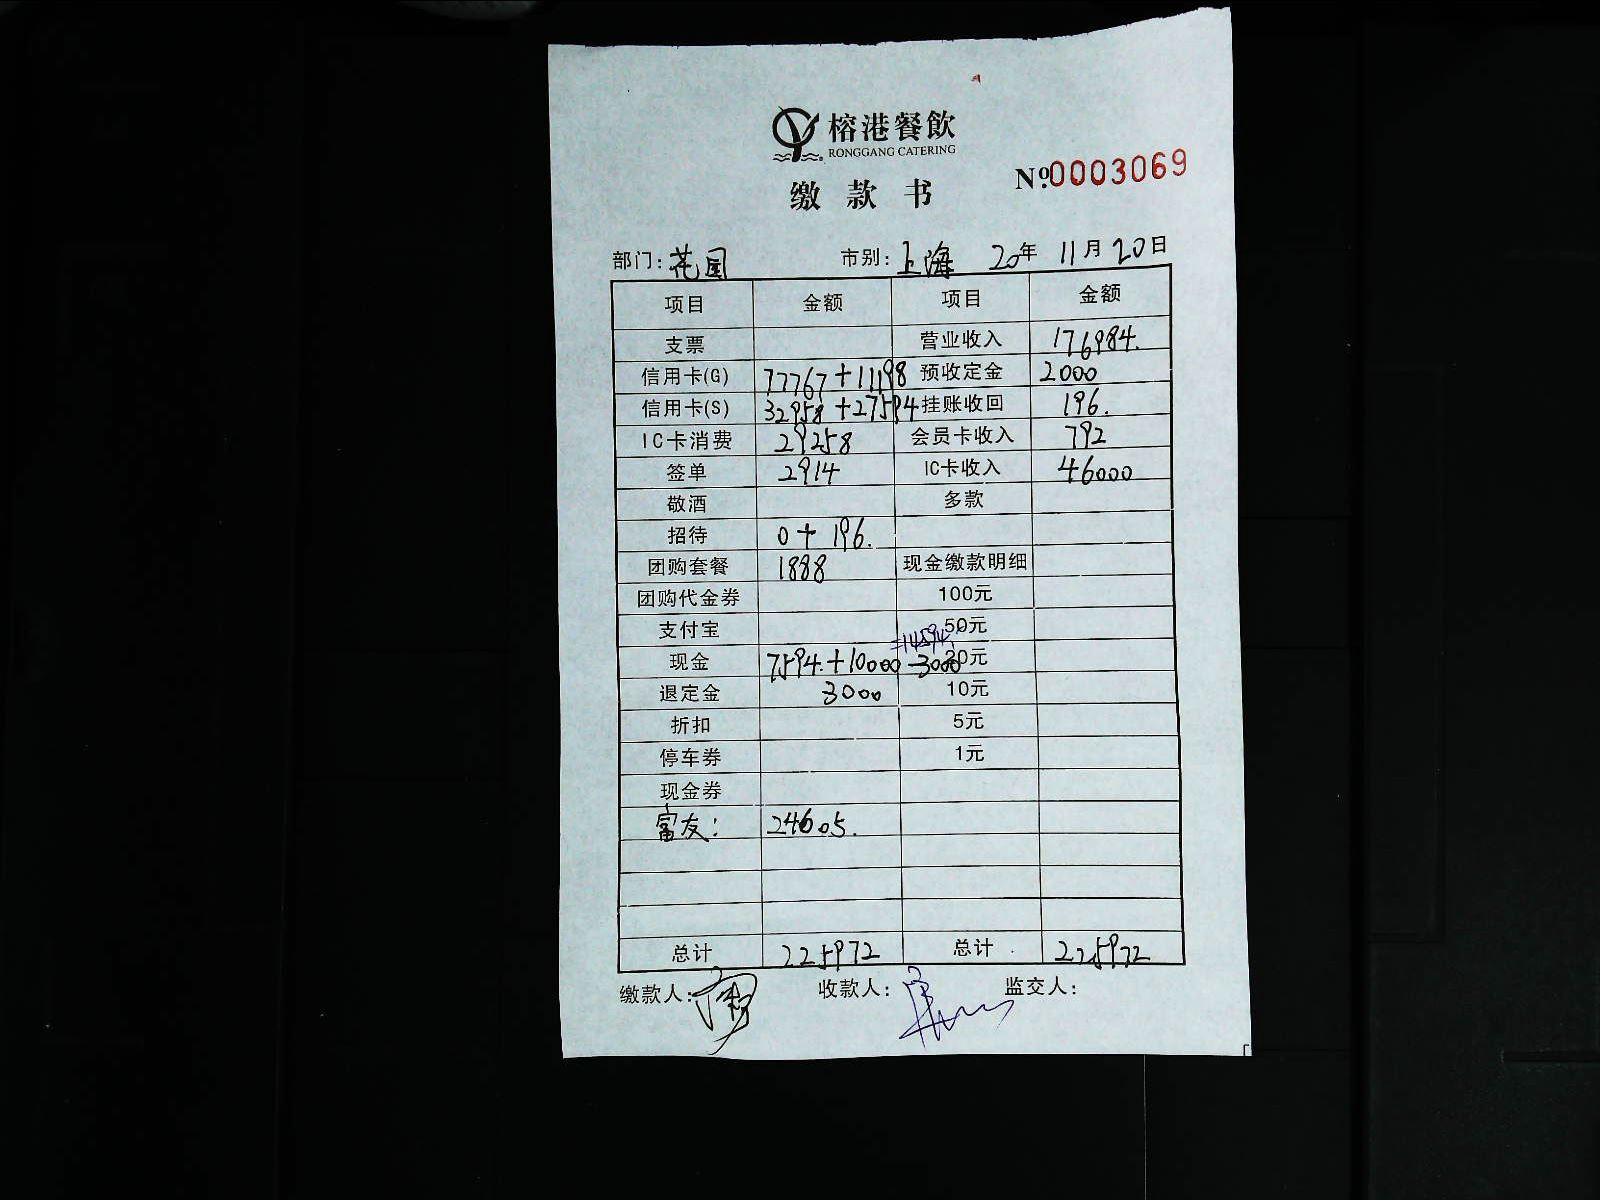 榕港餐飲
RONGGANG CATERING
№.0003069
缴款书
部门:花园 市别:上海 20年 11月20日
项目 金额 项目 金额
支票 营业收入 176984.
信用卡(G) 77767+11198 预收定金 2000
信用卡(S) 32958+27594 挂账收回 196.
IC卡消费 29258 会员卡收入 792
签单 2914 IC卡收入 46000
敬酒 多款
招待 0+196.
团购套餐 1888 现金缴款明细
团购代金券 100元
支付宝 50元
=14594
现金 7594.+10000-3000 20元
退定金 3000 10元
折扣 5元
停车券 1元
现金券
富友: 24605.
总计 225972 总计 225972
缴款人: 收款人: 监交人: